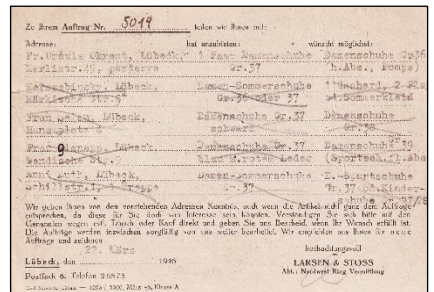 Zu Ihrem Auftrag Nr. 5019 teilen wir Ihnen mit:
Adresse: hat anzubieten: wünscht möglichst:
Fr. Ursula Lübeck, 1 Paar Damenschuhe Damenschuhe Gr.36
Marlistr.49, parterre Gr.37 (h.Abs., Pumps)
Lübeck, Damen-Sommerschuhe
Gr.36 oder 37 Sommerkleid
Frau Lübeck, Damenschuhe Gr.37 Damenschuhe
Hansaplatz schwarz Gr.38
Frau Damenschuhe Gr.37 Damenschuhe 39
9 blau m.rotem Leder (Sportsch.fl.Abs
Lübeck, Damen-Sommerschuhe D.-Sportschuhe
Schillstr.1, 1 Treppe Gr.37 Gr.37 od.Kinder-
schuhe Gr.27/28
Wir geben Ihnen von den vorstehenden Adressen Kenntnis, auch wenn die Artikel nicht ganz dem Auftrage
entsprechen, da diese für Sie doch von Interesse sein könnten. Verständigen Sie sich bitte mit den
Genannten wegen evtl. Tausch oder Kauf direkt und geben Sie uns Bescheid, wenn Ihr Wunsch erfüllt ist.
Die Aufträge werden inzwischen sorgfältig von uns weiter bearbeitet. Wir empfehlen uns für neue
Aufträge und zeichnen
hochachtungsvoll
Lübeck, den 22. März 1946 LARSEN & STOSS
Postfach 6. Telefon 26873 Abt.: Nordwest Ring Vermittlung
März 46, Klasse A